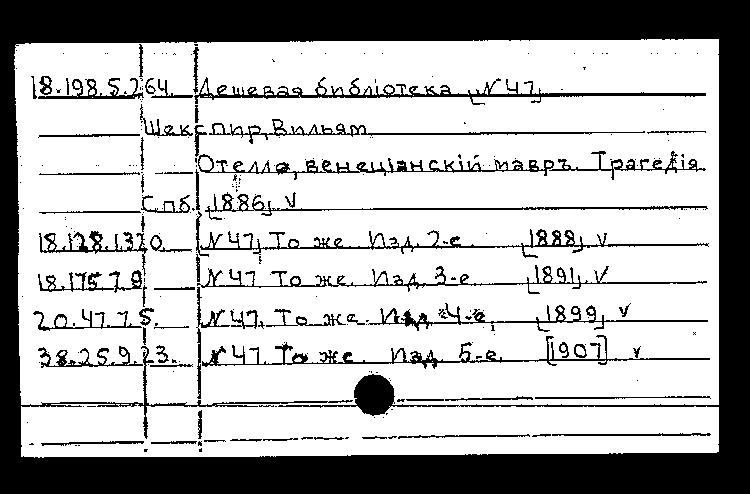 18.198.5.264. Дешевая библіотека [N 47]
Шекспир, Вильям
Отелло, венеціанскій мавръ. Трагедія
Спб. [1886] v
18.128.1320. [N 47] То же. Изд. 2-е. [1888] v
18.175.7.9. N 47. То же. Изд. 3-е. [1891] v
20.47.7.5. N 47. То же. Изд. 4-е. [1899] v
38.25.9.23. N 47. То же. Изд. 5-е. [1907] v